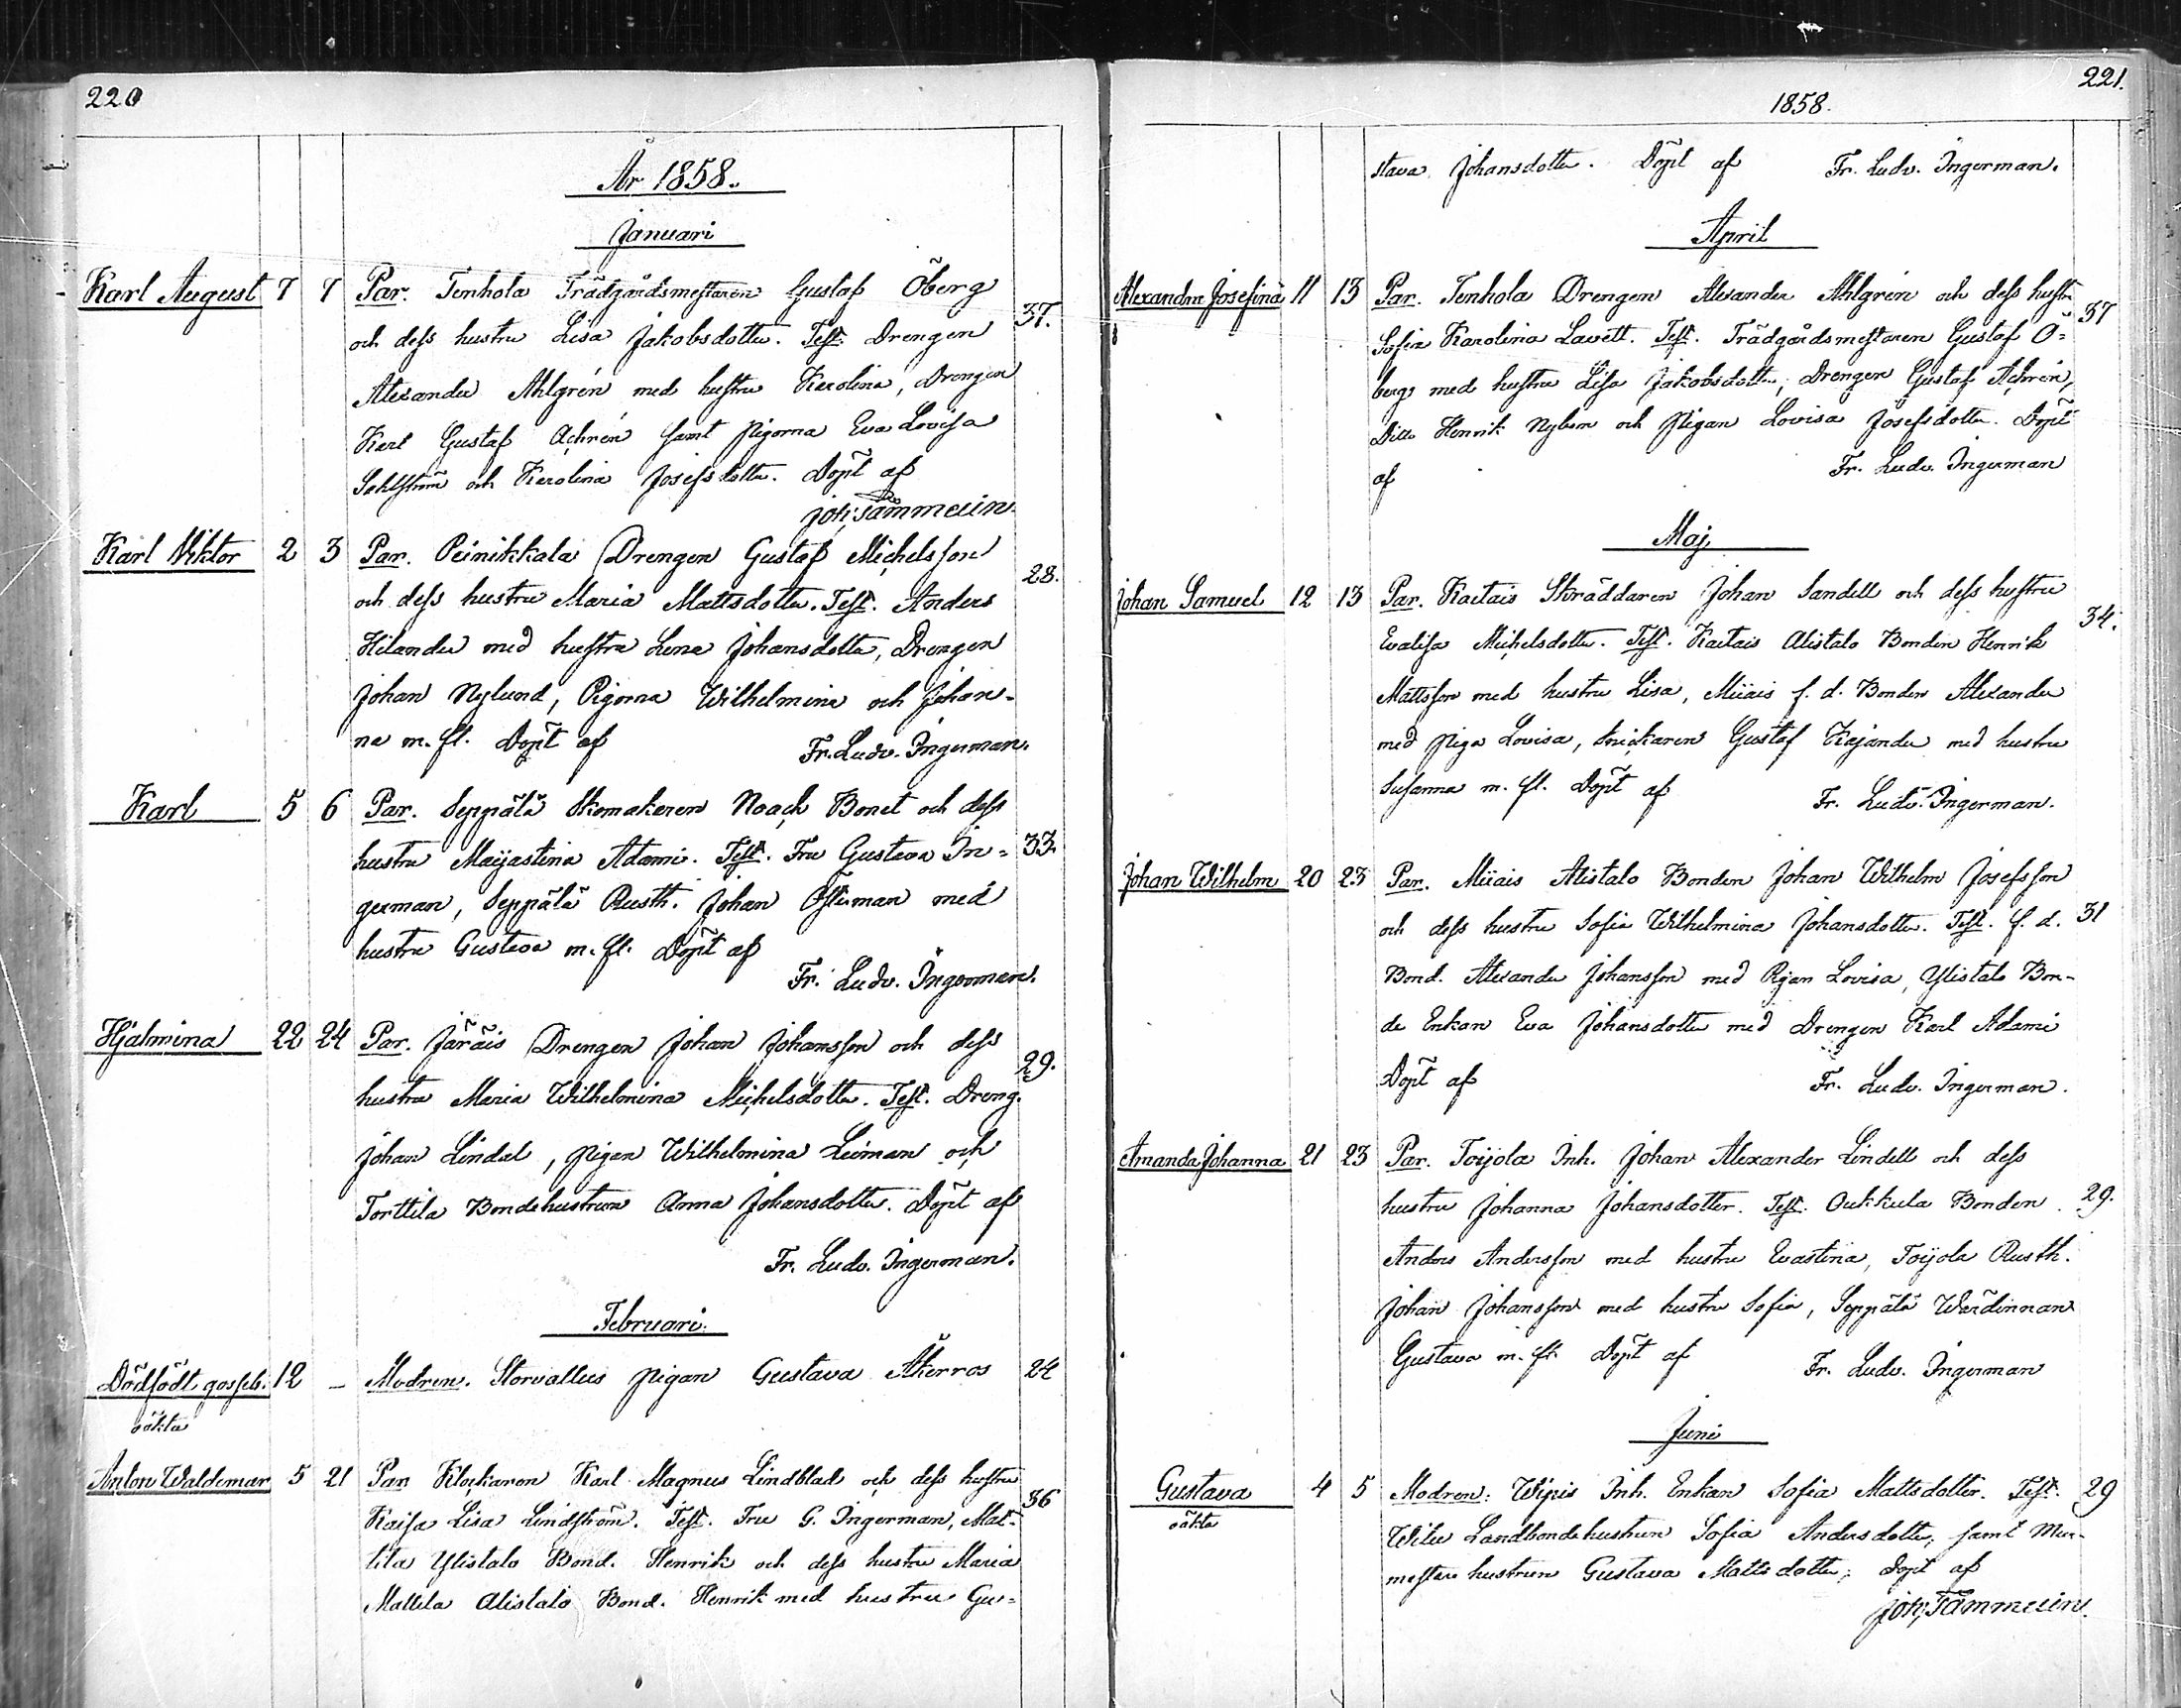 220
År 1858.
Januari
Karl August 7 7 Par. Tenhola Trädgårdsmestaren Gustaf Öberg
och dess hustru Lisa Jakobsdotter. Test. Drengen 37.
Alexander Ahlgrén med hustru Karolina, Drengen
Karl Gustaf Achrén samt pigorna Eva Lovisa
Sahlström och Karolina Josefsdotter. Döpt af
Joh: Tammelin.
Karl Viktor 2 3 Par. Peinikkala Drengen Gustaf Michelsson
och dess hustru Maria Mattsdotter. Test. Anders 28.
Hilander med hustru Lena Johansdotter, Drengen
Johan Nylund, Pigorna Wilhelmina och Johan-
na m. fl. Döpt af Fr. Ludv. Ingerman.
Karl 5 6 Par. Seppälä Skomakeren Noach Bonet och dess
hustru Maijastina Adami. Test. Fru Gustava In= 33.
german, Seppälä Rusth. Johan Österman med
hustru Gustava m. fl. Döpt af
Fr. Ludv. Ingerman.
Hjalmina 22 24 Par. Järäis Drengen Johan Johansson och dess
hustru Maria Wilhelmina Michelsdotter. Test. Dreng. 29.
Johan Lindal, pigan Wilhelmina Leiman och
Torttila Bondehustrun Anna Johansdotter. Döpt af
Fr. Ludv. Ingerman.
Februari.
Dödfödt gosseb. 12 – Modren. Storvallus pigan Gustava Åkerros 24
oäkta
Anton Waldemar 5 21 Par. Klockaren Karl Magnus Lindblad och dess hustru
Kaisa Lisa Lindström. Test. Fru G. Ingerman, Mat- 36
tila Ylistalo Bond. Henrik och dess hustru Maria
Mattila Alistalo Bond. Henrik med hustru Gu=
221.
1858.
stava Johansdotter. Döpt af Fr. Ludv. Ingerman.
April
Alexandra Josefina 11 13 Par. Tenhola Drengen Alexander Ahlgrén och dess hustru 37
Sofia Karolina Lavett. Test. Trädgårdsmestaren Gustaf Ö=
berg med hustru Lisa Jakobsdotter, Drengen Gustaf Achrén,
Dito Henrik Nylun och Pigan Lovisa Josefsdotter. Döpt
af Fr. Ludv. Ingerman
Maj
Johan Samuel 12 13 Par. Kaitais Skräddaren Johan Sandell och dess hustru
Evalisa Michelsdotter. Test. Kaitais Alistalo Bonden Henrik 34.
Mattsson med hustru Lisa, Miiais f. d. Bonden Alexander
med piga Lovisa, snickaren Gustaf Kajander med hustru
Susanna m. fl. Döpt af Fr. Ludv. Ingerman.
Johan Wilhelm 20 23 Par. Miiais Alistalo Bonden Johan Wilhelm Josefsson
och dess hustru Sofia Wilhelmina Johansdotter. Test. f. d. 31
Bond. Alexander Johansson med Pigan Lovisa, Ylistalo Bon-
de Enkan Eva Johansdotter med Drengen Karl Adami
Döpt af Fr. Ludv. Ingerman.
Amanda Johanna 21 23 Par. Toijola Inh. Johan Alexander Lindell och dess
hustru Johanna Johansdotter. Test. Oukkula Bonden 29.
Anders Andersson med hustru Evastina, Toijola Rusth.
Johan Johansson med hustru Sofia, Seppälä Wärdinnan
Gustava m. fl. Döpt af Fr. Ludv. Ingerman
Juni
Gustava 4 5 Modren: Wipis Inh. Enkan Sofia Mattsdotter. Test. 29
oäkta
Landbondehustrun Sofia Andersdotter, samt Mur-
mestare hustrun Gustava Mattsdotter; döpt af
Joh: Tammelin.